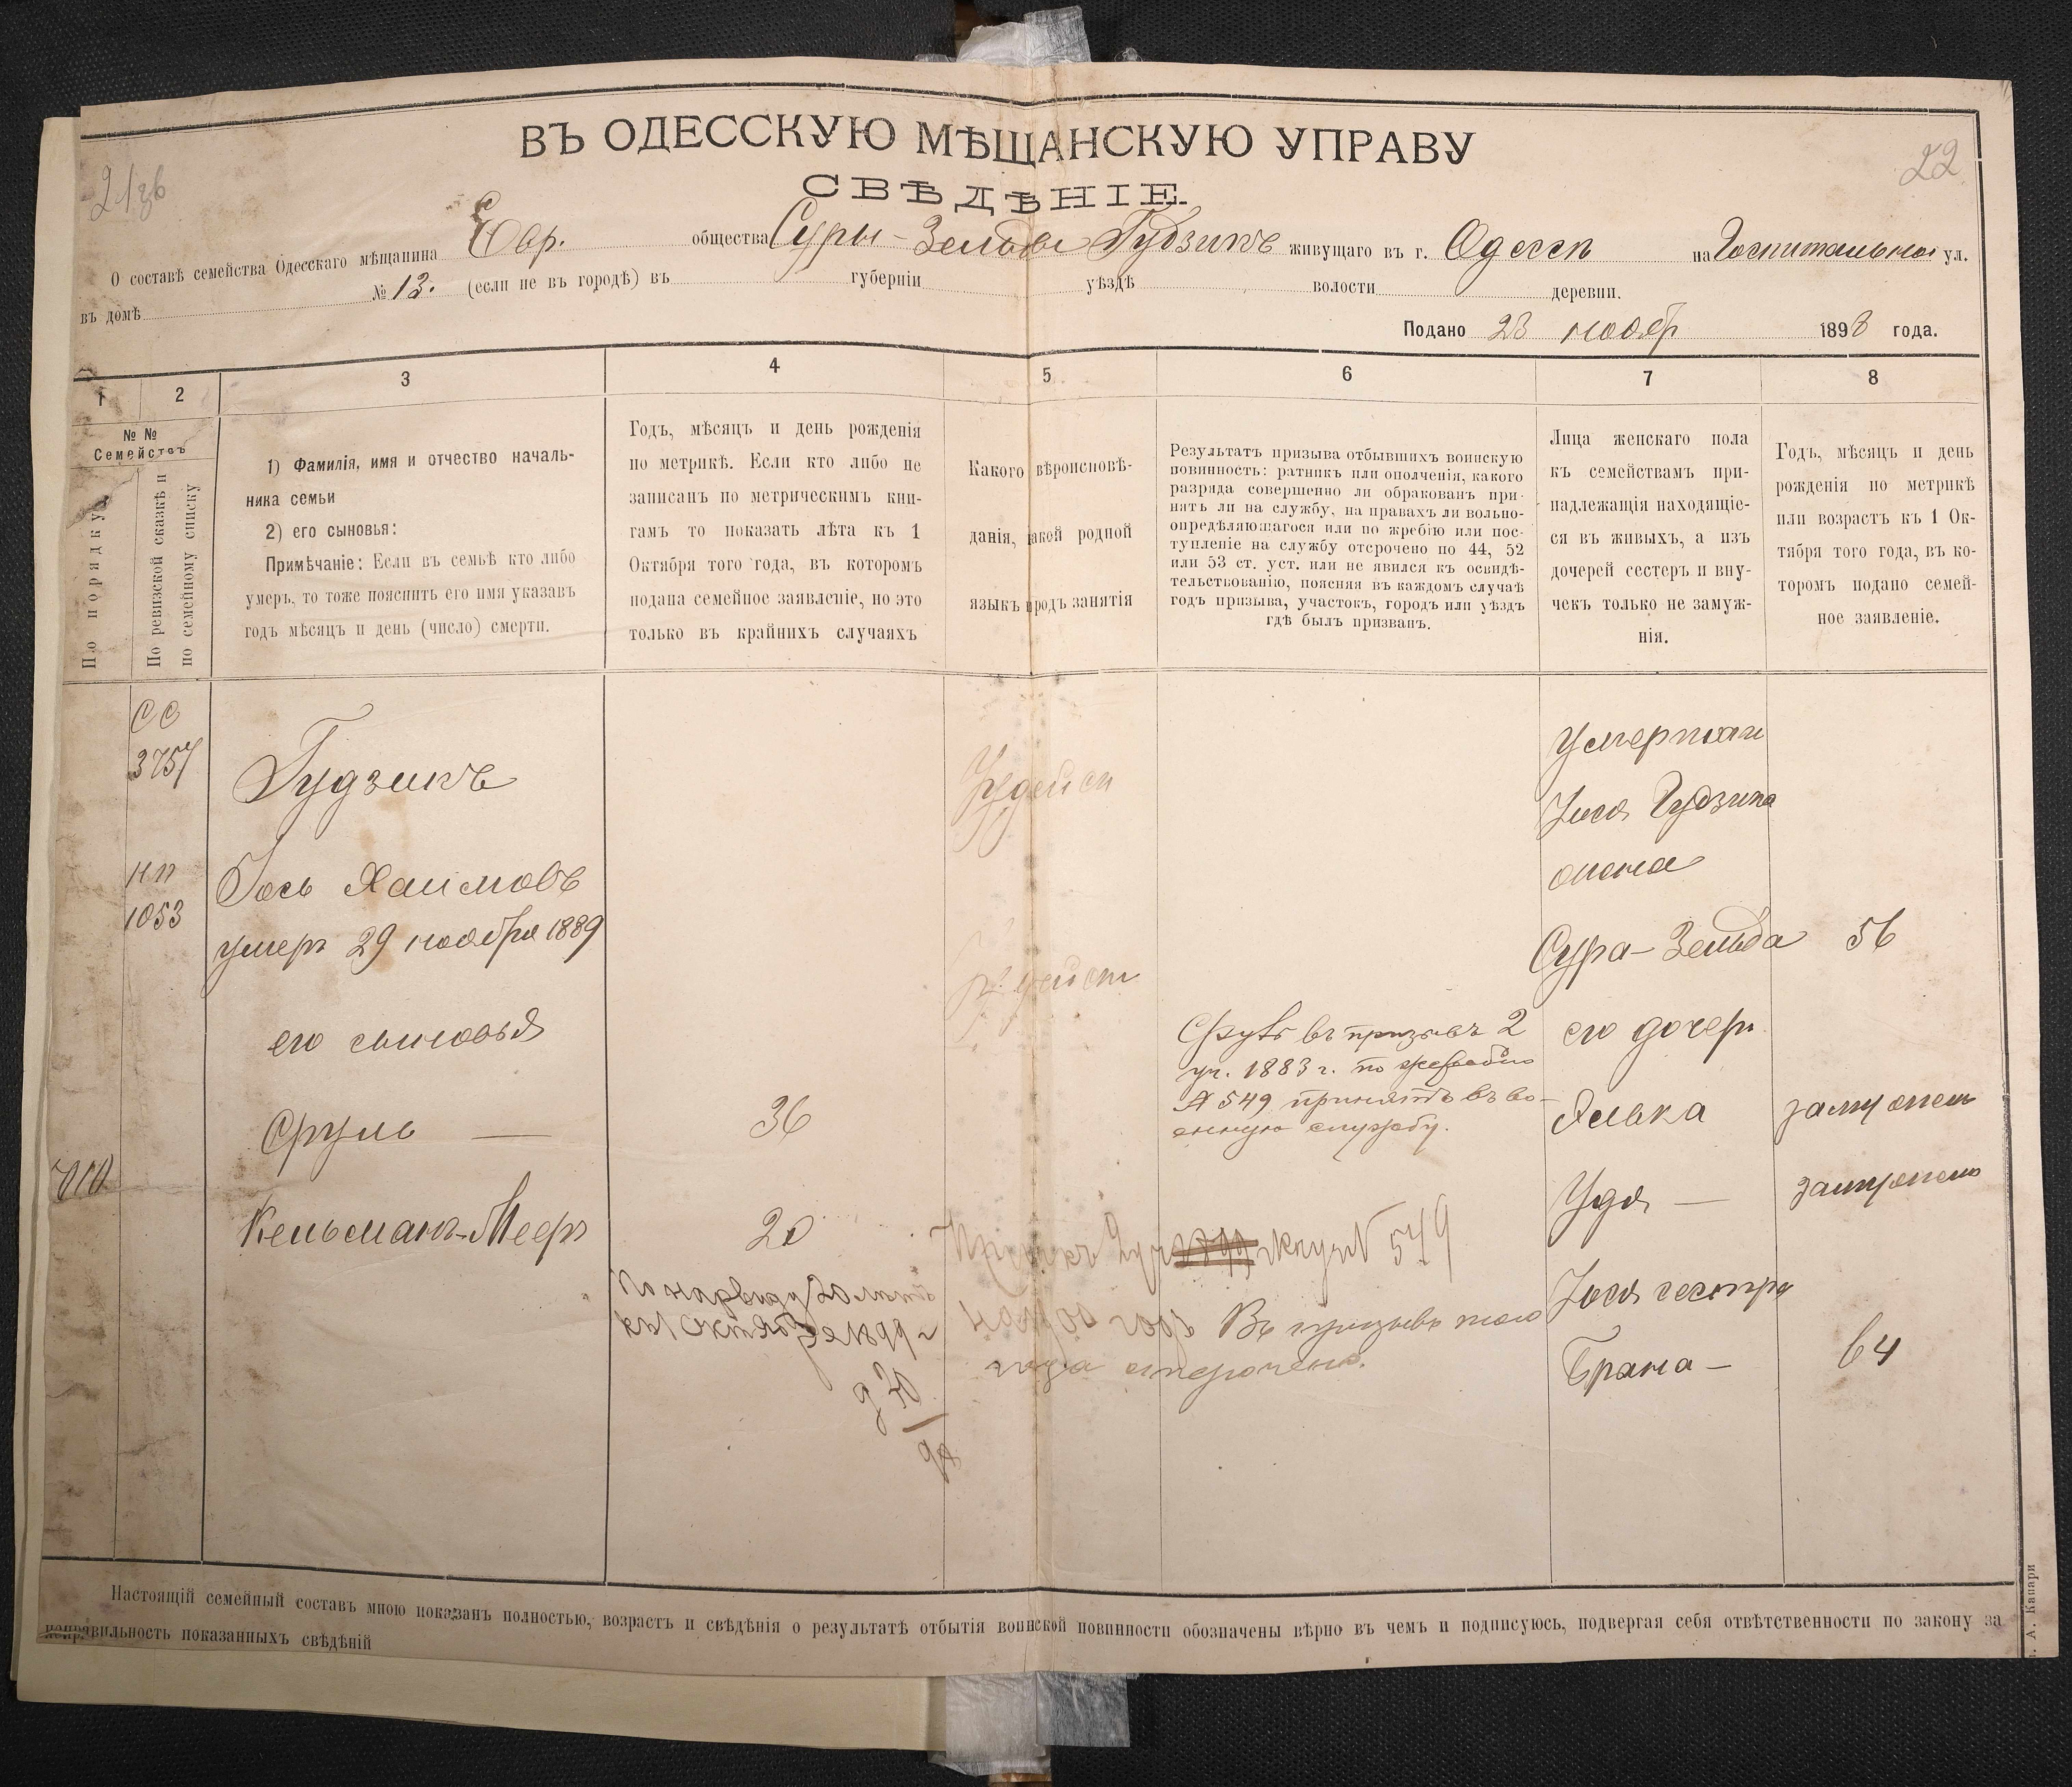 ВЪ ОДЕССКУЮ МѢЩАНСКУЮ УПРАВУ
СВѢДѢНІЕ.
21зв
22
О составѣ семейства Одесскаго мѣщанина Евр. общества Суры-Зельды Гудзикъ живущаго въ г. Одессѣ на Госпитальной ул.
въ домѣ № 13. (если не въ городѣ) въ губерніи уѣздѣ волости деревни.
Подано 23 ноябр 1898 года.
1
2
3
4
5
6
7
8
№ №
Семействъ
По порядку
По ревизской сказкѣ и
по семейному списку
1) Фамилія, имя и отчество началь-
ника семьи
2) его сыновья:
Примѣчаніе: Если въ семьѣ кто либо
умеръ, то тоже пояснить его имя указавъ
годъ мѣсяцъ и день (число) смерти.
Годъ, мѣсяцъ и день рожденія
по метрикѣ. Если кто либо не
записанъ по метрическимъ кни-
гамъ то показать лѣта къ 1
Октября того года, въ которомъ
подана семейное заявленіе, но это
только въ крайнихъ случаяхъ
Какого вѣроисповѣ-
данія, какой родной
языкъ родъ занятія
Результатъ призыва отбывшихъ воинскую
повинность: ратникъ или ополченія, какого
разряда совершенно ли обракованъ при-
нятъ ли на службу, на правахъ ли вольно-
опредѣляющагося или по жребію или пос-
тупленіе на службу отсрочено по 44, 52
или 53 ст. уст. или не явился къ освидѣ-
тельствованію, поясняя въ каждомъ случаѣ
годъ призыва, участокъ, городъ или уѣздъ
гдѣ былъ призванъ.
Лица женскаго пола
къ семействамъ при-
надлежащія находящіе-
ся въ живыхъ, а изъ
дочерей сестеръ и вну-
чекъ только не замуж-
нія.
Годъ, мѣсяцъ и день
рожденія по метрикѣ
или возрастъ къ 1 Ок-
тября того года, въ ко-
торомъ подано семей-
ное заявленіе.
СС
3757
Гудзикъ
1053
Іось Хаимовъ
умеръ 29 ноября 1889
его сыновья
Сруль — 36
Кельманъ-Мееръ 20
По нар виду 20 лѣтъ
къ 1 Октября 1899 г
Іудейск
Іудейск
Сруль въ призывъ 2
уч. 1883 г. по жеребью
№ 549 принятъ въ во-
енную службу.
549
Въ призывъ того
года отсрочено.
Умершаго
Іося Гудзика
жена
Сура-Зельда 56
его дочери
Хавка замужем
Удя — замужем
Іося сестра
Брана — 64
Настоящій семейный составъ мною показанъ полностью, возрастъ и свѣдѣнія о результатѣ отбытія воинской повинности обозначены вѣрно въ чемъ и подписуюсь, подвергая себя отвѣтственности по закону за
неправильность показанныхъ свѣдѣній